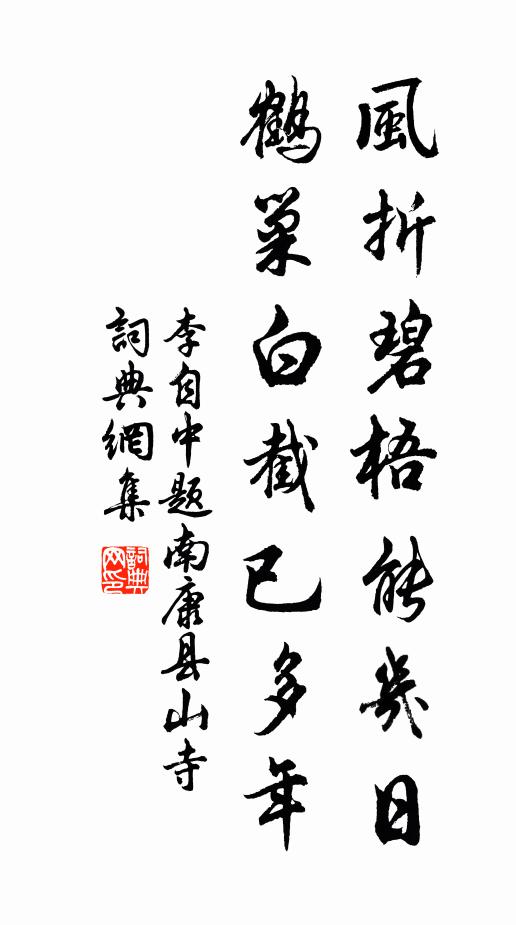 風折碧梧能幾日
鶴巢白截已多年
李自中题南康县山寺
詞典網集
詞典网印